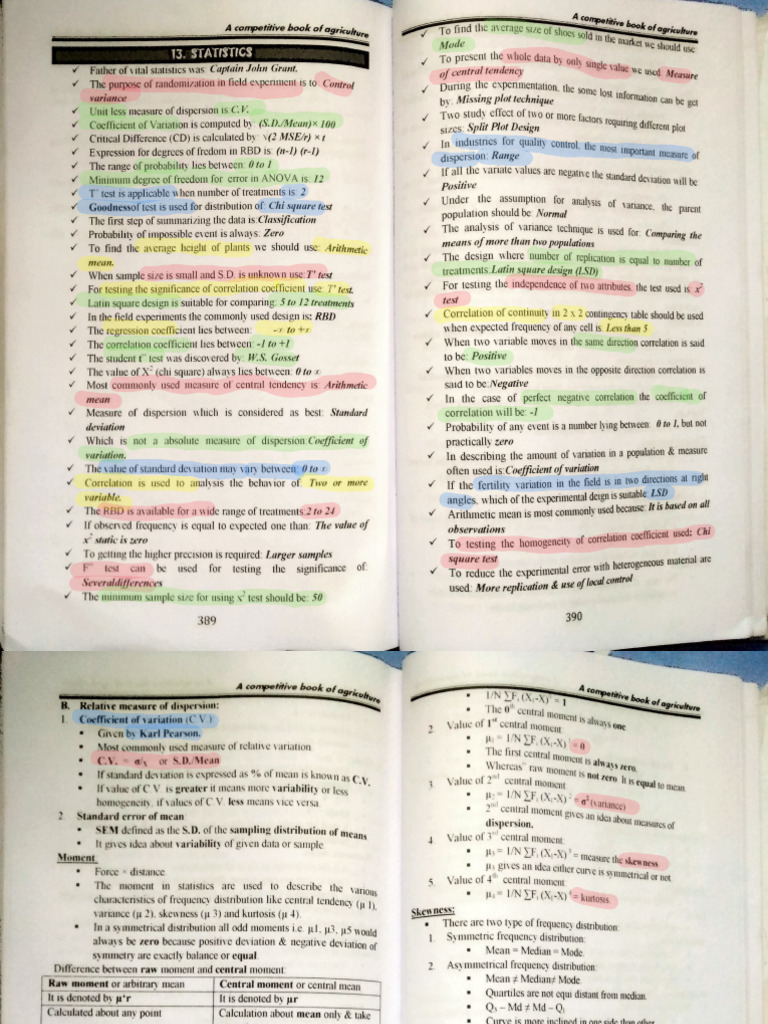 A competitive book of agriculture
13. STATISTICS
✓ Father of vital statistics was: Captain John Grant.
✓ The purpose of randomization in field experiment is to: Control
variance
✓ Unit less measure of dispersion is C.V.
✓ Coefficient of Variation is computed by: (S.D./Mean)× 100
✓ Critical Difference (CD) is calculated by: √(2 MSE/r) × t
✓ Expression for degrees of fredom in RBD is: (n-1) (r-1)
✓ The range of probability lies between: 0 to 1
✓ Minimum degree of freedom for error in ANOVA is: 12
✓ T" test is applicable when number of treatments is: 2
✓ Goodnessof test is used for distribution of: Chi square test
✓ The first step of summarizing the data is:Classification
✓ Probability of impossible event is always: Zero
✓ To find the average height of plants we should use: Arithmetic
mean.
✓ When sample size is small and S.D. is unknown use:T' test
✓ For testing the significance of correlation coefficient use: T' test.
✓ Latin square design is suitable for comparing: 5 to 12 treatments
✓ In the field experiments the commonly used design is: RBD
✓ The regression coefficient lies between: -∞ to +∞
✓ The correlation coefficient lies between: -1 to +1
✓ The student t" test was discovered by: W.S. Gosset
✓ The value of X² (chi square) always lies between: 0 to ∞
✓ Most commonly used measure of central tendency is: Arithmetic
mean
✓ Measure of dispersion which is considered as best: Standard
deviation
✓ Which is not a absolute measure of dispersion:Coefficient of
variation.
✓ The value of standard deviation may vary between: 0 to ∞
✓ Correlation is used to analysis the behavior of: Two or more
variable.
✓ The RBD is available for a wide range of treatments:2 to 24
✓ If observed frequency is equal to expected one than: The value of
x² static is zero
✓ To getting the higher precision is required: Larger samples
✓ F" test can be used for testing the significance of:
Severaldifferences
✓ The minimum sample size for using x² test should be: 50
389
A competitive book of agriculture
✓ To find the average size of shoes sold in the market we should use:
Mode
✓ To present the whole data by only single value we used: Measure
of central tendency
✓ During the experimentation, the some lost information can be get
by: Missing plot technique
✓ Two study effect of two or more factors requiring different plot
sizes: Split Plot Design
✓ In industries for quality control, the most important measure of
dispersion: Range
✓ If all the variate values are negative the standard deviation will be:
Positive
✓ Under the assumption for analysis of variance, the parent
population should be: Normal
✓ The analysis of variance technique is used for: Comparing the
means of more than two populations
✓ The design where number of replication is equal to number of
treatments:Latin square design (LSD)
✓ For testing the independence of two attributes, the test used is: x²
test
✓ Correlation of continuity in 2 x 2 contingency table should be used
when expected frequency of any cell is: Less than 5
✓ When two variable moves in the same direction correlation is said
to be: Positive
✓ When two variables moves in the opposite direction correlation is
said to be:Negative
✓ In the case of perfect negative correlation the coefficient of
correlation will be: -1
✓ Probability of any event is a number lying between: 0 to 1, but not
practically zero
✓ In describing the amount of variation in a population & measure
often used is:Coefficient of variation
✓ If the fertility variation in the field is in two directions at right
angles, which of the experimental deign is suitable: LSD
✓ Arithmetic mean is most commonly used because: It is based on all
observations
✓ To testing the homogeneity of correlation coefficient used: Chi
square test
✓ To reduce the experimental error with heterogeneous material are
used: More replication & use of local control
390
A competitive book of agriculture
B. Relative measure of dispersion:
1. Coefficient of variation (C.V.)
▪ Given by Karl Pearson.
▪ Most commonly used measure of relative variation
▪ C.V. = σ/x or S.D./Mean
▪ If standard deviation is expressed as % of mean is known as C.V.
▪ If value of C.V. is greater it means more variability or less
homogeneity, if values of C.V. less means vice versa.
2. Standard error of mean
▪ SEM defined as the S.D. of the sampling distribution of means
▪ It gives idea about variability of given data or sample.
Moment
▪ Force × distance.
▪ The moment in statistics are used to describe the various
characteristics of frequency distribution like central tendency (μ 1),
variance (μ 2), skewness (μ 3) and kurtosis (μ 4).
▪ In a symmetrical distribution all odd moments i.e. μ1, μ3, μ5 would
always be zero because positive deviation & negative deviation of
symmetry are exactly balance or equal.
Difference between raw moment and central moment:
Raw moment or arbitrary mean Central moment or central mean
It is denoted by μ'r It is denoted by μr
Calculated about any point Calculation about mean only & take
A competitive book of agriculture
▪ 1/N ∑Fᵢ (Xᵢ-X)⁰ = 1
▪ The 0th central moment is always one
2. Value of 1st central moment:
▪ μ₁ = 1/N ∑Fᵢ (Xᵢ-X)¹ = 0
▪ The first central moment is always zero.
▪ Whereas" raw moment is not zero. It is equal to mean.
3. Value of 2nd central moment:
▪ μ₂ = 1/N ∑Fᵢ (Xᵢ-X)² = σ² (variance)
▪ 2nd central moment gives an idea about measures of
dispersion.
4. Value of 3rd central moment:
▪ μ₃ = 1/N ∑Fᵢ (Xᵢ-X)³ = measure the skewness
▪ μ₃ gives an idea either curve is symmetrical or not
5. Value of 4th central moment:
▪ μ₄ = 1/N ∑Fᵢ (Xᵢ-X)⁴ = kurtosis
Skewness:
▪ There are two type of frequency distribution:
1. Symmetric frequency distribution:
▪ Mean = Median = Mode.
2. Asymmetrical frequency distribution:
▪ Mean ≠ Median≠ Mode.
▪ Quartiles are not equi distant from median.
▪ Q₃ – Md ≠ Md – Q₁
▪ Curve is more inclined in one side than other